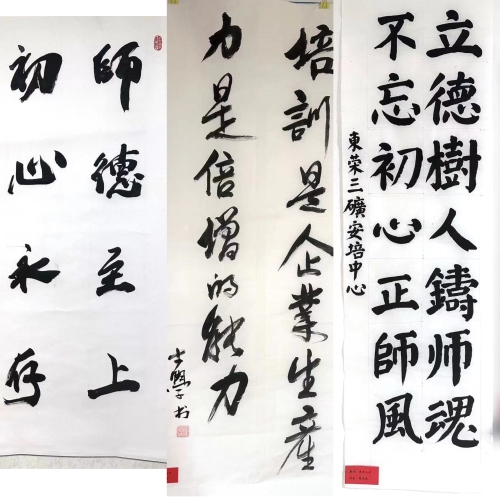 師德至上
初心永存
培訓是企業生産
力是倍增的能力
立德樹人鑄师魂
不忘初心正師風
東荣三礦安培中心